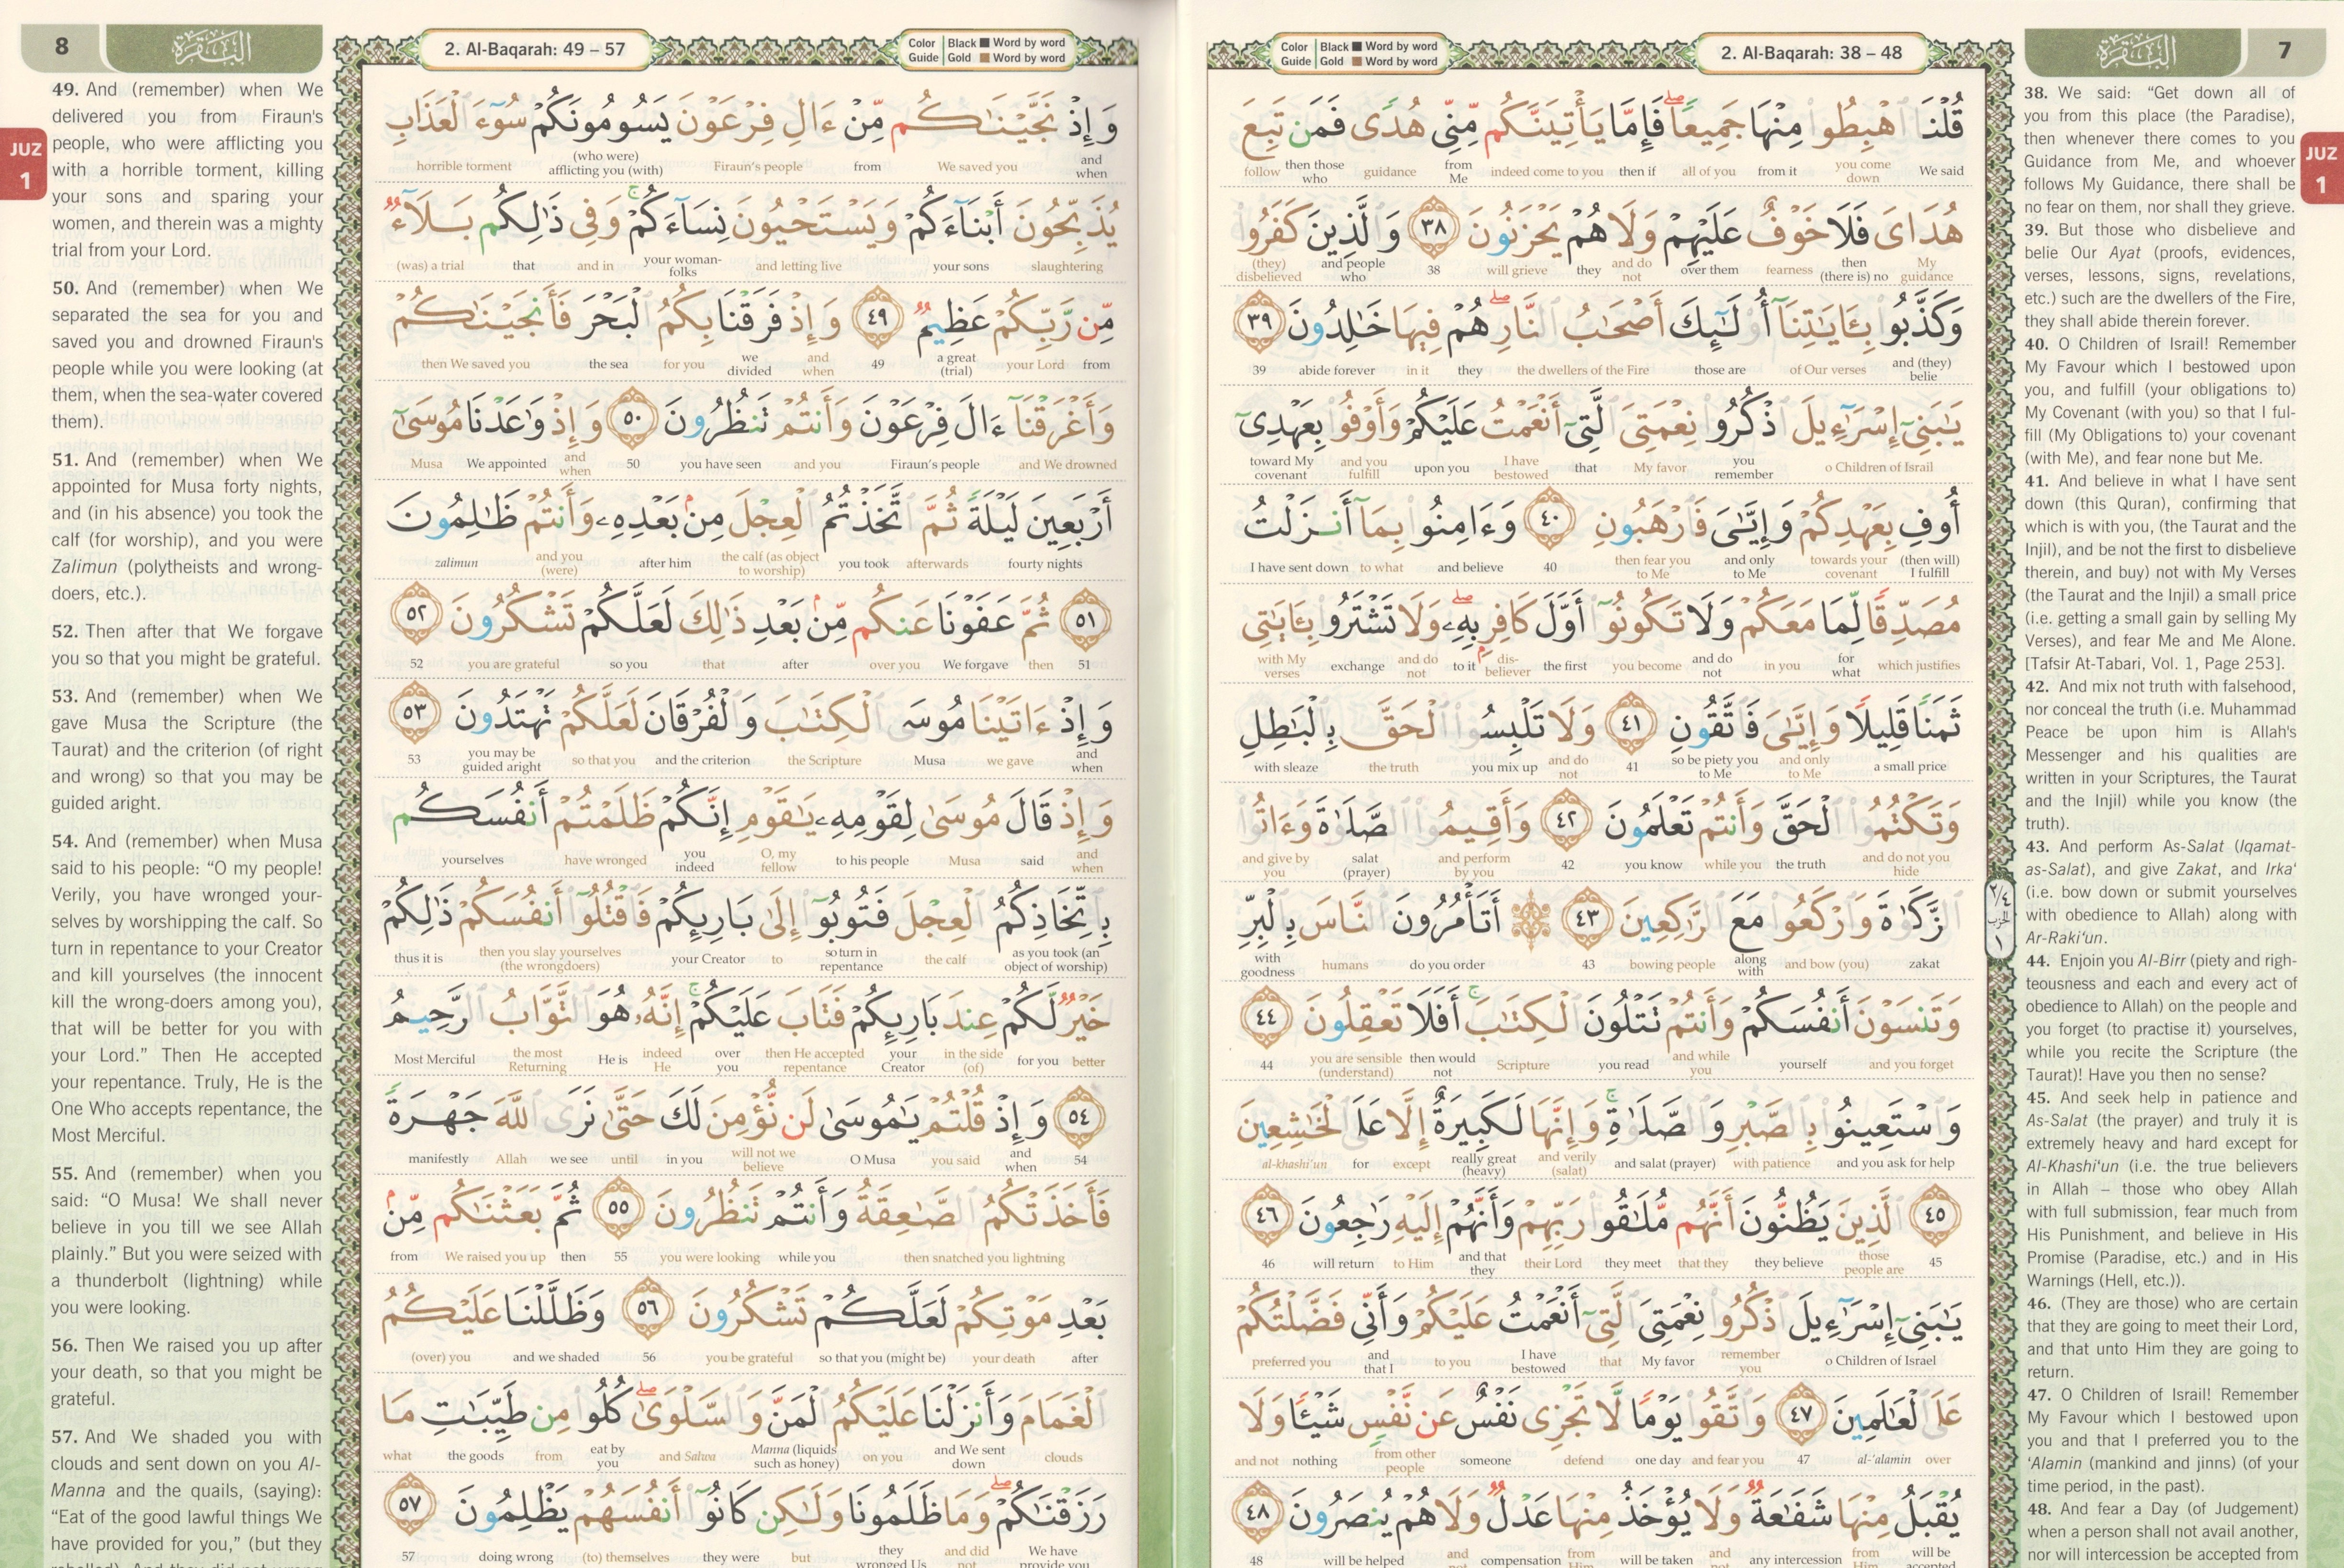 7
البقرة
2. Al-Baqarah: 38 – 48
Color Guide | Black ■ Word by word
Gold ■ Word by word
JUZ
1
قُلْنَا اهْبِطُوا مِنْهَا جَمِيعًا ۖ فَإِمَّا يَأْتِيَنَّكُم مِّنِّي هُدًى فَمَن تَبِعَ
We said you come down from it all of you then if indeed come to you from Me guidance then those who follow
هُدَايَ فَلَا خَوْفٌ عَلَيْهِمْ وَلَا هُمْ يَحْزَنُونَ ٣٨ وَالَّذِينَ كَفَرُوا
My guidance then (there is) no fearness over them and do not they will grieve 38 and people who (they) disbelieved
وَكَذَّبُوا بِـَٔايَٰتِنَآ أُولَٰٓئِكَ أَصْحَٰبُ النَّارِ ۖ هُمْ فِيهَا خَٰلِدُونَ ٣٩
and (they) belie of Our verses those are the dwellers of the Fire they in it abide forever 39
يَٰبَنِىٓ إِسْرَٰٓءِيلَ اذْكُرُوا نِعْمَتِىَ الَّتِىٓ أَنْعَمْتُ عَلَيْكُمْ وَأَوْفُوا بِعَهْدِىٓ
o Children of Israil you remember My favor that I have bestowed upon you and you fulfill toward My covenant
أُوفِ بِعَهْدِكُمْ وَإِيَّٰىَ فَارْهَبُونِ ٤٠ وَءَامِنُوا بِمَآ أَنزَلْتُ
(then will) I fulfill towards your covenant and only to Me then fear you to Me 40 and believe to what I have sent down
مُصَدِّقًا لِّمَا مَعَكُمْ وَلَا تَكُونُوٓا أَوَّلَ كَافِرٍۭ بِهِۦ ۖ وَلَا تَشْتَرُوا بِـَٔايَٰتِى
which justifies for what in you and do not you become the first dis-believer to it and do not exchange with My verses
ثَمَنًا قَلِيلًا وَإِيَّٰىَ فَاتَّقُونِ ٤١ وَلَا تَلْبِسُوا الْحَقَّ بِالْبَٰطِلِ
a small price and only to Me so be piety you to Me 41 and do not you mix up the truth with sleaze
وَتَكْتُمُوا الْحَقَّ وَأَنتُمْ تَعْلَمُونَ ٤٢ وَأَقِيمُوا الصَّلَوٰةَ وَءَاتُوا
and do not you hide the truth while you you know 42 and perform by you salat (prayer) and give by you
الزَّكَوٰةَ وَارْكَعُوا مَعَ الرَّٰكِعِينَ ٤٣ ۞ أَتَأْمُرُونَ النَّاسَ بِالْبِرِّ
zakat and bow (you) along with bowing people 43 do you order humans with goodness
وَتَنسَوْنَ أَنفُسَكُمْ وَأَنتُمْ تَتْلُونَ الْكِتَٰبَ ۚ أَفَلَا تَعْقِلُونَ ٤٤
and you forget yourself and while you you read Scripture then would not you are sensible (understand) 44
وَاسْتَعِينُوا بِالصَّبْرِ وَالصَّلَوٰةِ ۚ وَإِنَّهَا لَكَبِيرَةٌ إِلَّا عَلَى الْخَٰشِعِينَ
and you ask for help with patience and salat (prayer) and verily (salat) really great (heavy) except for al-khashi'un
٤٥ الَّذِينَ يَظُنُّونَ أَنَّهُم مُّلَٰقُوا رَبِّهِمْ وَأَنَّهُمْ إِلَيْهِ رَٰجِعُونَ ٤٦
45 those people are they believe that they they meet their Lord and that they to Him will return 46
يَٰبَنِىٓ إِسْرَٰٓءِيلَ اذْكُرُوا نِعْمَتِىَ الَّتِىٓ أَنْعَمْتُ عَلَيْكُمْ وَأَنِّى فَضَّلْتُكُمْ
o Children of Israel remember you My favor that I have bestowed to you and that I preferred you
عَلَى الْعَٰلَمِينَ ٤٧ وَاتَّقُوا يَوْمًا لَّا تَجْزِى نَفْسٌ عَن نَّفْسٍ شَيْـًٔا وَلَا
over al-'alamin 47 and fear you one day defend someone from other people nothing and not
يُقْبَلُ مِنْهَا شَفَٰعَةٌ وَلَا يُؤْخَذُ مِنْهَا عَدْلٌ وَلَا هُمْ يُنصَرُونَ ٤٨
will be accepted from Him any intercession and not will be taken from Him compensation and not will be helped 48
٢/٤
الحزب
١
38. We said: “Get down all of
you from this place (the Paradise),
then whenever there comes to you
Guidance from Me, and whoever
follows My Guidance, there shall be
no fear on them, nor shall they grieve.
39. But those who disbelieve and
belie Our Ayat (proofs, evidences,
verses, lessons, signs, revelations,
etc.) such are the dwellers of the Fire,
they shall abide therein forever.
40. O Children of Israil! Remember
My Favour which I bestowed upon
you, and fulfill (your obligations to)
My Covenant (with you) so that I ful-
fill (My Obligations to) your covenant
(with Me), and fear none but Me.
41. And believe in what I have sent
down (this Quran), confirming that
which is with you, (the Taurat and the
Injil), and be not the first to disbelieve
therein, and buy) not with My Verses
(the Taurat and the Injil) a small price
(i.e. getting a small gain by selling My
Verses), and fear Me and Me Alone.
[Tafsir At-Tabari, Vol. 1, Page 253].
42. And mix not truth with falsehood,
nor conceal the truth (i.e. Muhammad
Peace be upon him is Allah's
Messenger and his qualities are
written in your Scriptures, the Taurat
and the Injil) while you know (the
truth).
43. And perform As-Salat (Iqamat-
as-Salat), and give Zakat, and Irka‘
(i.e. bow down or submit yourselves
with obedience to Allah) along with
Ar-Raki‘un.
44. Enjoin you Al-Birr (piety and righ-
teousness and each and every act of
obedience to Allah) on the people and
you forget (to practise it) yourselves,
while you recite the Scripture (the
Taurat)! Have you then no sense?
45. And seek help in patience and
As-Salat (the prayer) and truly it is
extremely heavy and hard except for
Al-Khashi‘un (i.e. the true believers
in Allah – those who obey Allah
with full submission, fear much from
His Punishment, and believe in His
Promise (Paradise, etc.) and in His
Warnings (Hell, etc.)).
46. (They are those) who are certain
that they are going to meet their Lord,
and that unto Him they are going to
return.
47. O Children of Israil! Remember
My Favour which I bestowed upon
you and that I preferred you to the
‘Alamin (mankind and jinns) (of your
time period, in the past).
48. And fear a Day (of Judgement)
when a person shall not avail another,
nor will intercession be accepted from
8
البقرة
2. Al-Baqarah: 49 – 57
Color Guide | Black ■ Word by word
Gold ■ Word by word
JUZ
1
وَإِذْ نَجَّيْنَٰكُم مِّنْ ءَالِ فِرْعَوْنَ يَسُومُونَكُمْ سُوٓءَ الْعَذَابِ
and when We saved you from Firaun's people (who were) afflicting you (with) horrible torment
يُذَبِّحُونَ أَبْنَآءَكُمْ وَيَسْتَحْيُونَ نِسَآءَكُمْ ۚ وَفِى ذَٰلِكُم بَلَآءٌ
slaughtering your sons and letting live your woman-folks and in that (was) a trial
مِّن رَّبِّكُمْ عَظِيمٌ ٤٩ وَإِذْ فَرَقْنَا بِكُمُ الْبَحْرَ فَأَنجَيْنَٰكُمْ
from your Lord a great (trial) 49 and when we divided for you the sea then We saved you
وَأَغْرَقْنَآ ءَالَ فِرْعَوْنَ وَأَنتُمْ تَنظُرُونَ ٥٠ وَإِذْ وَٰعَدْنَا مُوسَىٰٓ
and We drowned Firaun's people and you you have seen 50 and when We appointed Musa
أَرْبَعِينَ لَيْلَةً ثُمَّ اتَّخَذْتُمُ الْعِجْلَ مِنۢ بَعْدِهِۦ وَأَنتُمْ ظَٰلِمُونَ
fourty nights afterwards you took the calf (as object to worship) after him and you (were) zalimun
٥١ ثُمَّ عَفَوْنَا عَنكُم مِّنۢ بَعْدِ ذَٰلِكَ لَعَلَّكُمْ تَشْكُرُونَ ٥٢
51 then We forgave over you after that so you you are grateful 52
وَإِذْ ءَاتَيْنَا مُوسَى الْكِتَٰبَ وَالْفُرْقَانَ لَعَلَّكُمْ تَهْتَدُونَ ٥٣
and when we gave Musa the Scripture and the criterion so that you you may be guided aright 53
وَإِذْ قَالَ مُوسَىٰ لِقَوْمِهِۦ يَٰقَوْمِ إِنَّكُمْ ظَلَمْتُمْ أَنفُسَكُم
and when said Musa to his people O, my fellow you indeed have wronged yourselves
بِاتِّخَاذِكُمُ الْعِجْلَ فَتُوبُوٓا إِلَىٰ بَارِئِكُمْ فَاقْتُلُوٓا أَنفُسَكُمْ ذَٰلِكُمْ
as you took (an object of worship) the calf so turn in repentance to your Creator then you slay yourselves (the wrongdoers) thus it is
خَيْرٌ لَّكُمْ عِندَ بَارِئِكُمْ فَتَابَ عَلَيْكُمْ ۚ إِنَّهُۥ هُوَ التَّوَّابُ الرَّحِيمُ
better for you in the side (of) your Creator then He accepted repentance over you indeed He He is the most Returning Most Merciful
٥٤ وَإِذْ قُلْتُمْ يَٰمُوسَىٰ لَن نُّؤْمِنَ لَكَ حَتَّىٰ نَرَى اللَّهَ جَهْرَةً
54 and when you said O Musa will not we believe in you until we see Allah manifestly
فَأَخَذَتْكُمُ الصَّٰعِقَةُ وَأَنتُمْ تَنظُرُونَ ٥٥ ثُمَّ بَعَثْنَٰكُم مِّنۢ
then snatched you lightning while you you were looking 55 then We raised you up from
بَعْدِ مَوْتِكُمْ لَعَلَّكُمْ تَشْكُرُونَ ٥٦ وَظَلَّلْنَا عَلَيْكُمُ
after your death so that you (might be) you be grateful 56 and we shaded (over) you
الْغَمَامَ وَأَنزَلْنَا عَلَيْكُمُ الْمَنَّ وَالسَّلْوَىٰ ۖ كُلُوا مِن طَيِّبَٰتِ مَا
clouds and We sent down on you Manna (liquids such as honey) and Salwa eat by you from the goods what
رَزَقْنَٰكُمْ ۖ وَمَا ظَلَمُونَا وَلَٰكِن كَانُوٓا أَنفُسَهُمْ يَظْلِمُونَ ٥٧
We have provide you and did not they wronged Us but they were (to) themselves doing wrong 57
49. And (remember) when We
delivered you from Firaun's
people, who were afflicting you
with a horrible torment, killing
your sons and sparing your
women, and therein was a mighty
trial from your Lord.
50. And (remember) when We
separated the sea for you and
saved you and drowned Firaun's
people while you were looking (at
them, when the sea-water covered
them).
51. And (remember) when We
appointed for Musa forty nights,
and (in his absence) you took the
calf (for worship), and you were
Zalimun (polytheists and wrong-
doers, etc.).
52. Then after that We forgave
you so that you might be grateful.
53. And (remember) when We
gave Musa the Scripture (the
Taurat) and the criterion (of right
and wrong) so that you may be
guided aright.
54. And (remember) when Musa
said to his people: “O my people!
Verily, you have wronged your-
selves by worshipping the calf. So
turn in repentance to your Creator
and kill yourselves (the innocent
kill the wrong-doers among you),
that will be better for you with
your Lord.” Then He accepted
your repentance. Truly, He is the
One Who accepts repentance, the
Most Merciful.
55. And (remember) when you
said: “O Musa! We shall never
believe in you till we see Allah
plainly.” But you were seized with
a thunderbolt (lightning) while
you were looking.
56. Then We raised you up after
your death, so that you might be
grateful.
57. And We shaded you with
clouds and sent down on you Al-
Manna and the quails, (saying):
“Eat of the good lawful things We
have provided for you,” (but they